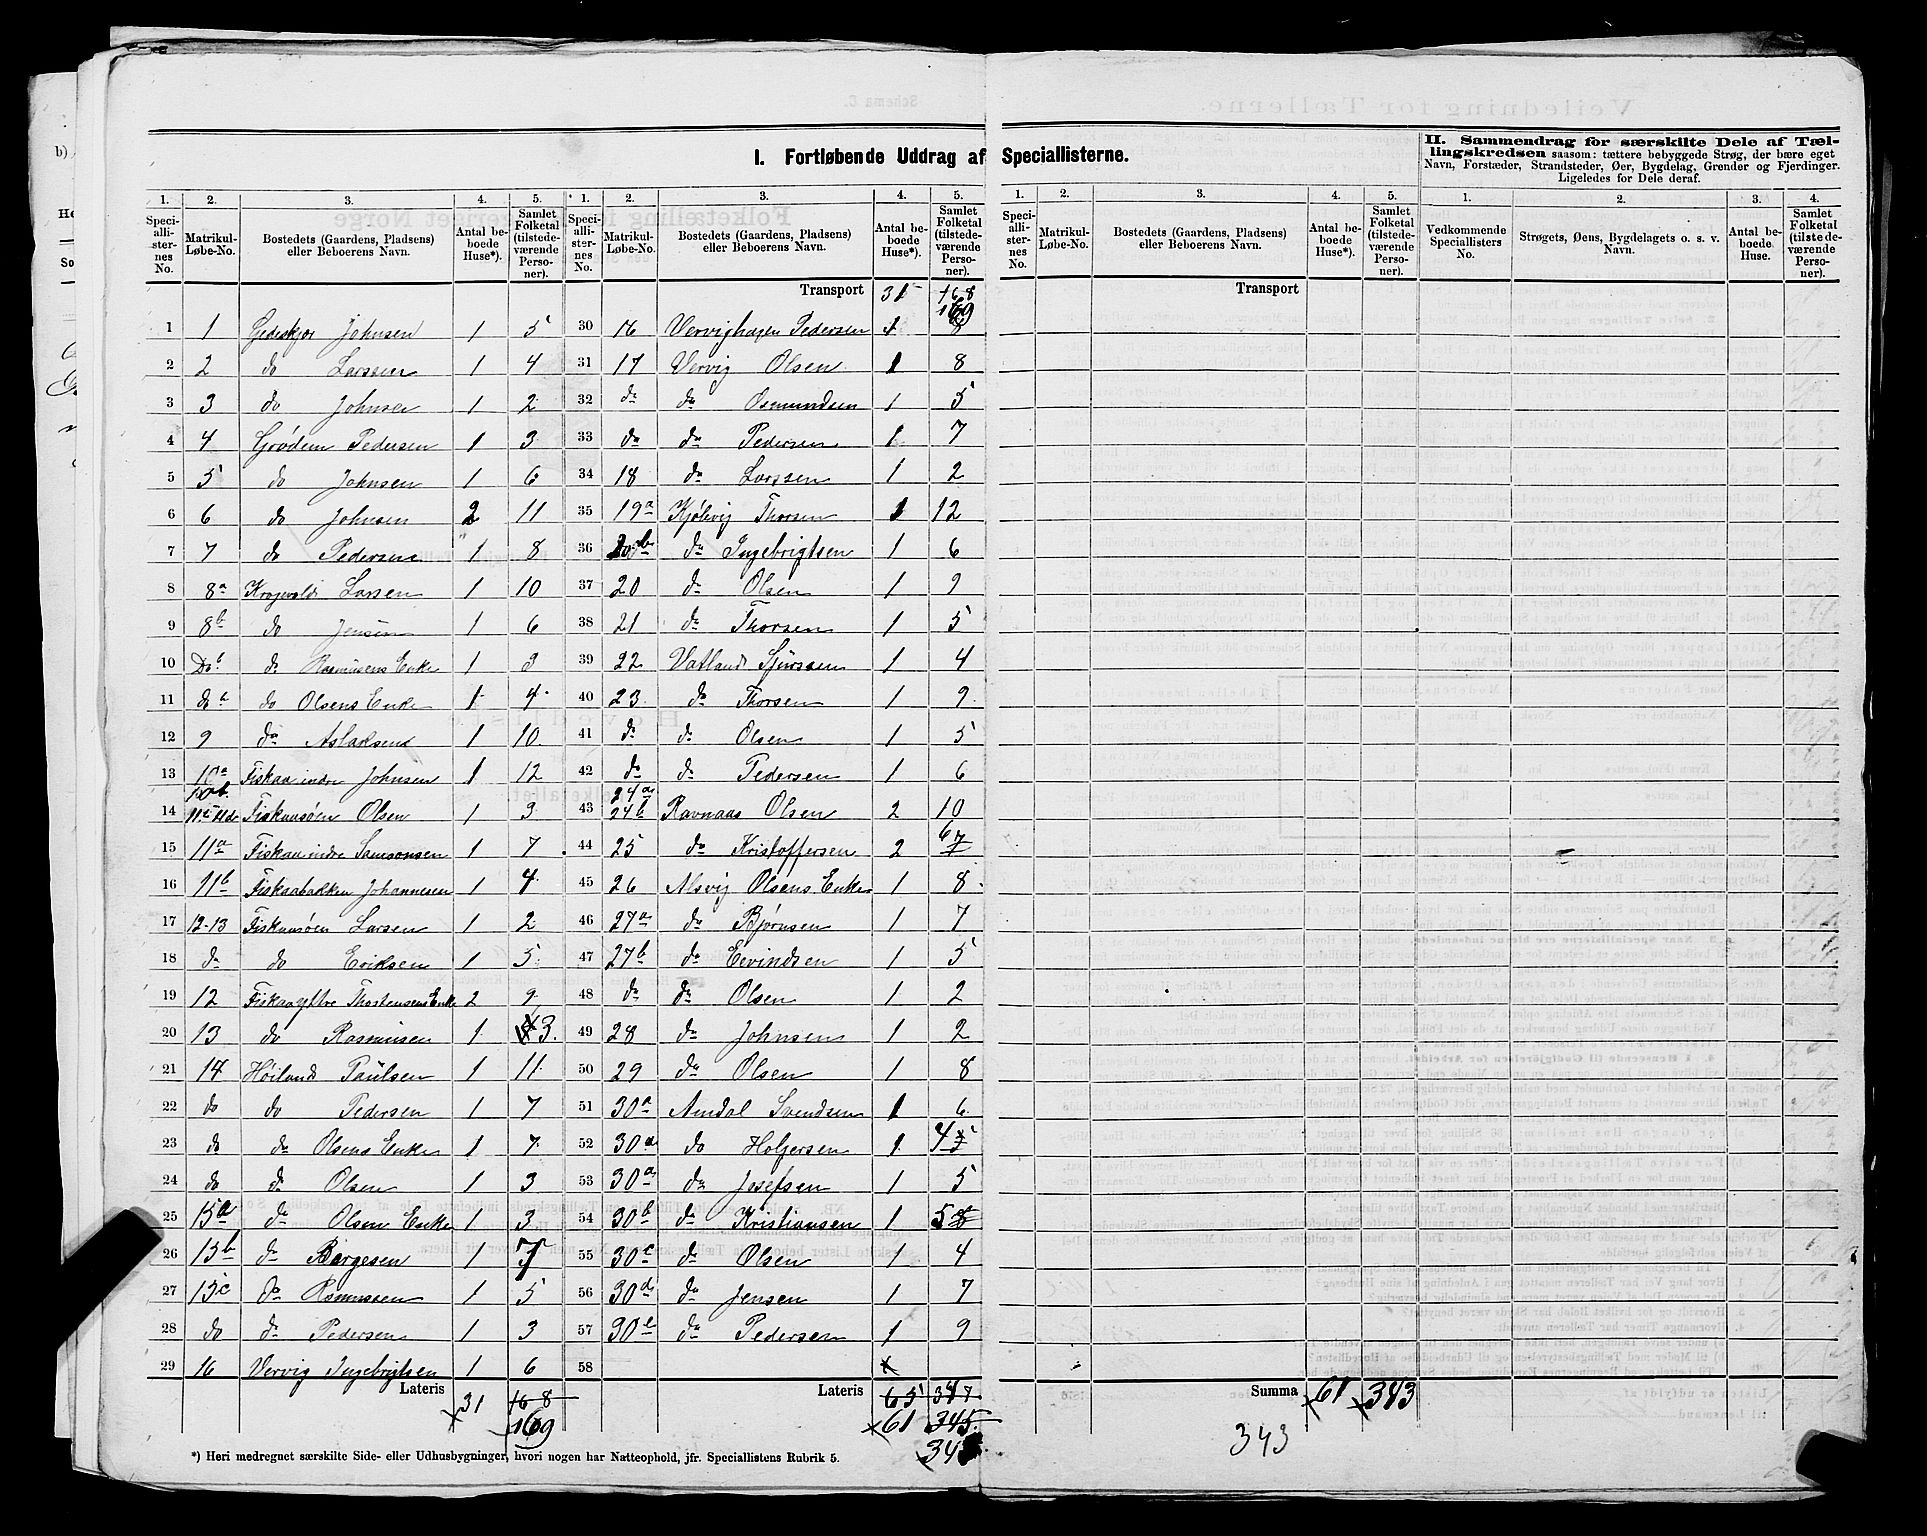 I. Fortløbende Uddrag af Speciallisterne.
II. Sammendrag for særskilte Dele af Tællingskredsen saasom: tættere bebyggede Strøg, der bære eget Navn, Forstæder, Strandsteder, Øer, Bygdelag, Grender og Fjerdinger. Ligeledes for Dele deraf.
1. 2. 3. 4. 5. 1. 2. 3. 4. 5. 1. 2. 3. 4. 5. 1. 2. 3. 4.
Speciallisternes No. Matrikul-Løbe-No. Bostedets (Gaardens, Pladsens) eller Beboerens Navn. Antal beboede Huse*). Samlet Folketal (tilstedeværende Personer).
Speciallisternes No. Matrikul-Løbe-No. Bostedets (Gaardens, Pladsens) eller Beboerens Navn. Antal beboede Huse*). Samlet Folketal (tilstedeværende Personer).
Speciallisternes No. Matrikul-Løbe-No. Bostedets (Gaardens, Pladsens) eller Beboerens Navn. Antal beboede Huse*). Samlet Folketal (tilstedeværende Personer).
Vedkommende Speciallisters No. Strøgets, Øens, Bygdelagets o. s. v. Navn. Antal beboede Huse. Samlet Folketal (tilstedeværende Personer).
1 1 Gjedeskjær Johnsen 1 5
2 2 do Larssen 1 4
3 3 do Johnsen 1 2
4 4 Grødem Pedersen 1 3
5 5 do Johnsen 1 6
6 6 do Johnsen 2 11
7 7 do Pedersen 1 8
8 8a Larsen 1 10
9 8b do Jensen 1 6
10 Do b do Rasmusens Enke 1 3
11 do do Olsens Enke 1 4
12 9 do Aslaksen 1 10
13 10a Fiskaa indre Johnsen 1 12
14 10b Fiskaasøen Olsen 1 3
15 11a Fiskaa indre Samsonsen 1 7
16 11b Fiskaabakken Johannesen 1 4
17 12-13 Fiskaasøen Larsen 1 2
18 do do Eriksen 1 5
19 12 Fiskaa yttre Thorstensens Enke 2 9
20 13 do Rasmusen 1 3
21 14 Høiland Paulsen 1 11
22 do do Pedersen 1 7
23 do do Olsens Enke 1 7
24 do do Olsen 1 3
25 15a do Olsen Enke 1 3
26 15b do Børgesen 1 7
27 15c do Rasmussen 1 5
28 do do Pedersen 1 3
29 16 Vervig Ingebrigtsen 1 6
Lateris 31 168
169
Transport 31 168
169
30 16 Vervighagen Pedersen 1 8
31 17 Vervig Olsen 1 8
32 do do Osmundsen 1 5
33 do do Pedersen 1 7
34 18 do Larssen 1 2
35 19a Kjølevig Thorsen 1 12
36 do Ingebrigtsen 1 6
37 20 do Olsen 1 9
38 21 do Thorsen 1 5
39 22 Vatland Sjurssen 1 4
40 23 do Thorsen 1 9
41 do do Olsen 1 5
42 do do Pedersen 1 6
43 24a 24b Ravnaas Olsen 2 10
44 25 do Kristoffersen 2 6 7
45 26 Alsvig Olsens Enke 1 8
46 27a do Bjørnsen 1 7
47 27b do Eevindsen 1 5
48 do do Olsen 1 2
49 28 do Johnsen 1 2
50 29 do Olsen 1 8
51 30a Amdal Svendsen 1 6
52 30a do Holgersen 1 4 5
53 30a do Josefsen 1 5
54 30b do Kristiansen 1 5
55 30c do Olsen 1 4
56 30d do Jensen 1 7
57 30e do Pedersen 1 9
58
Lateris 65 347
61 345
343
*) Heri medregnet særskilte Side- eller Udhusbygninger, hvori nogen har Natteophold, jfr. Speciallistens Rubrik 5.
Transport
Summa 61 343
343